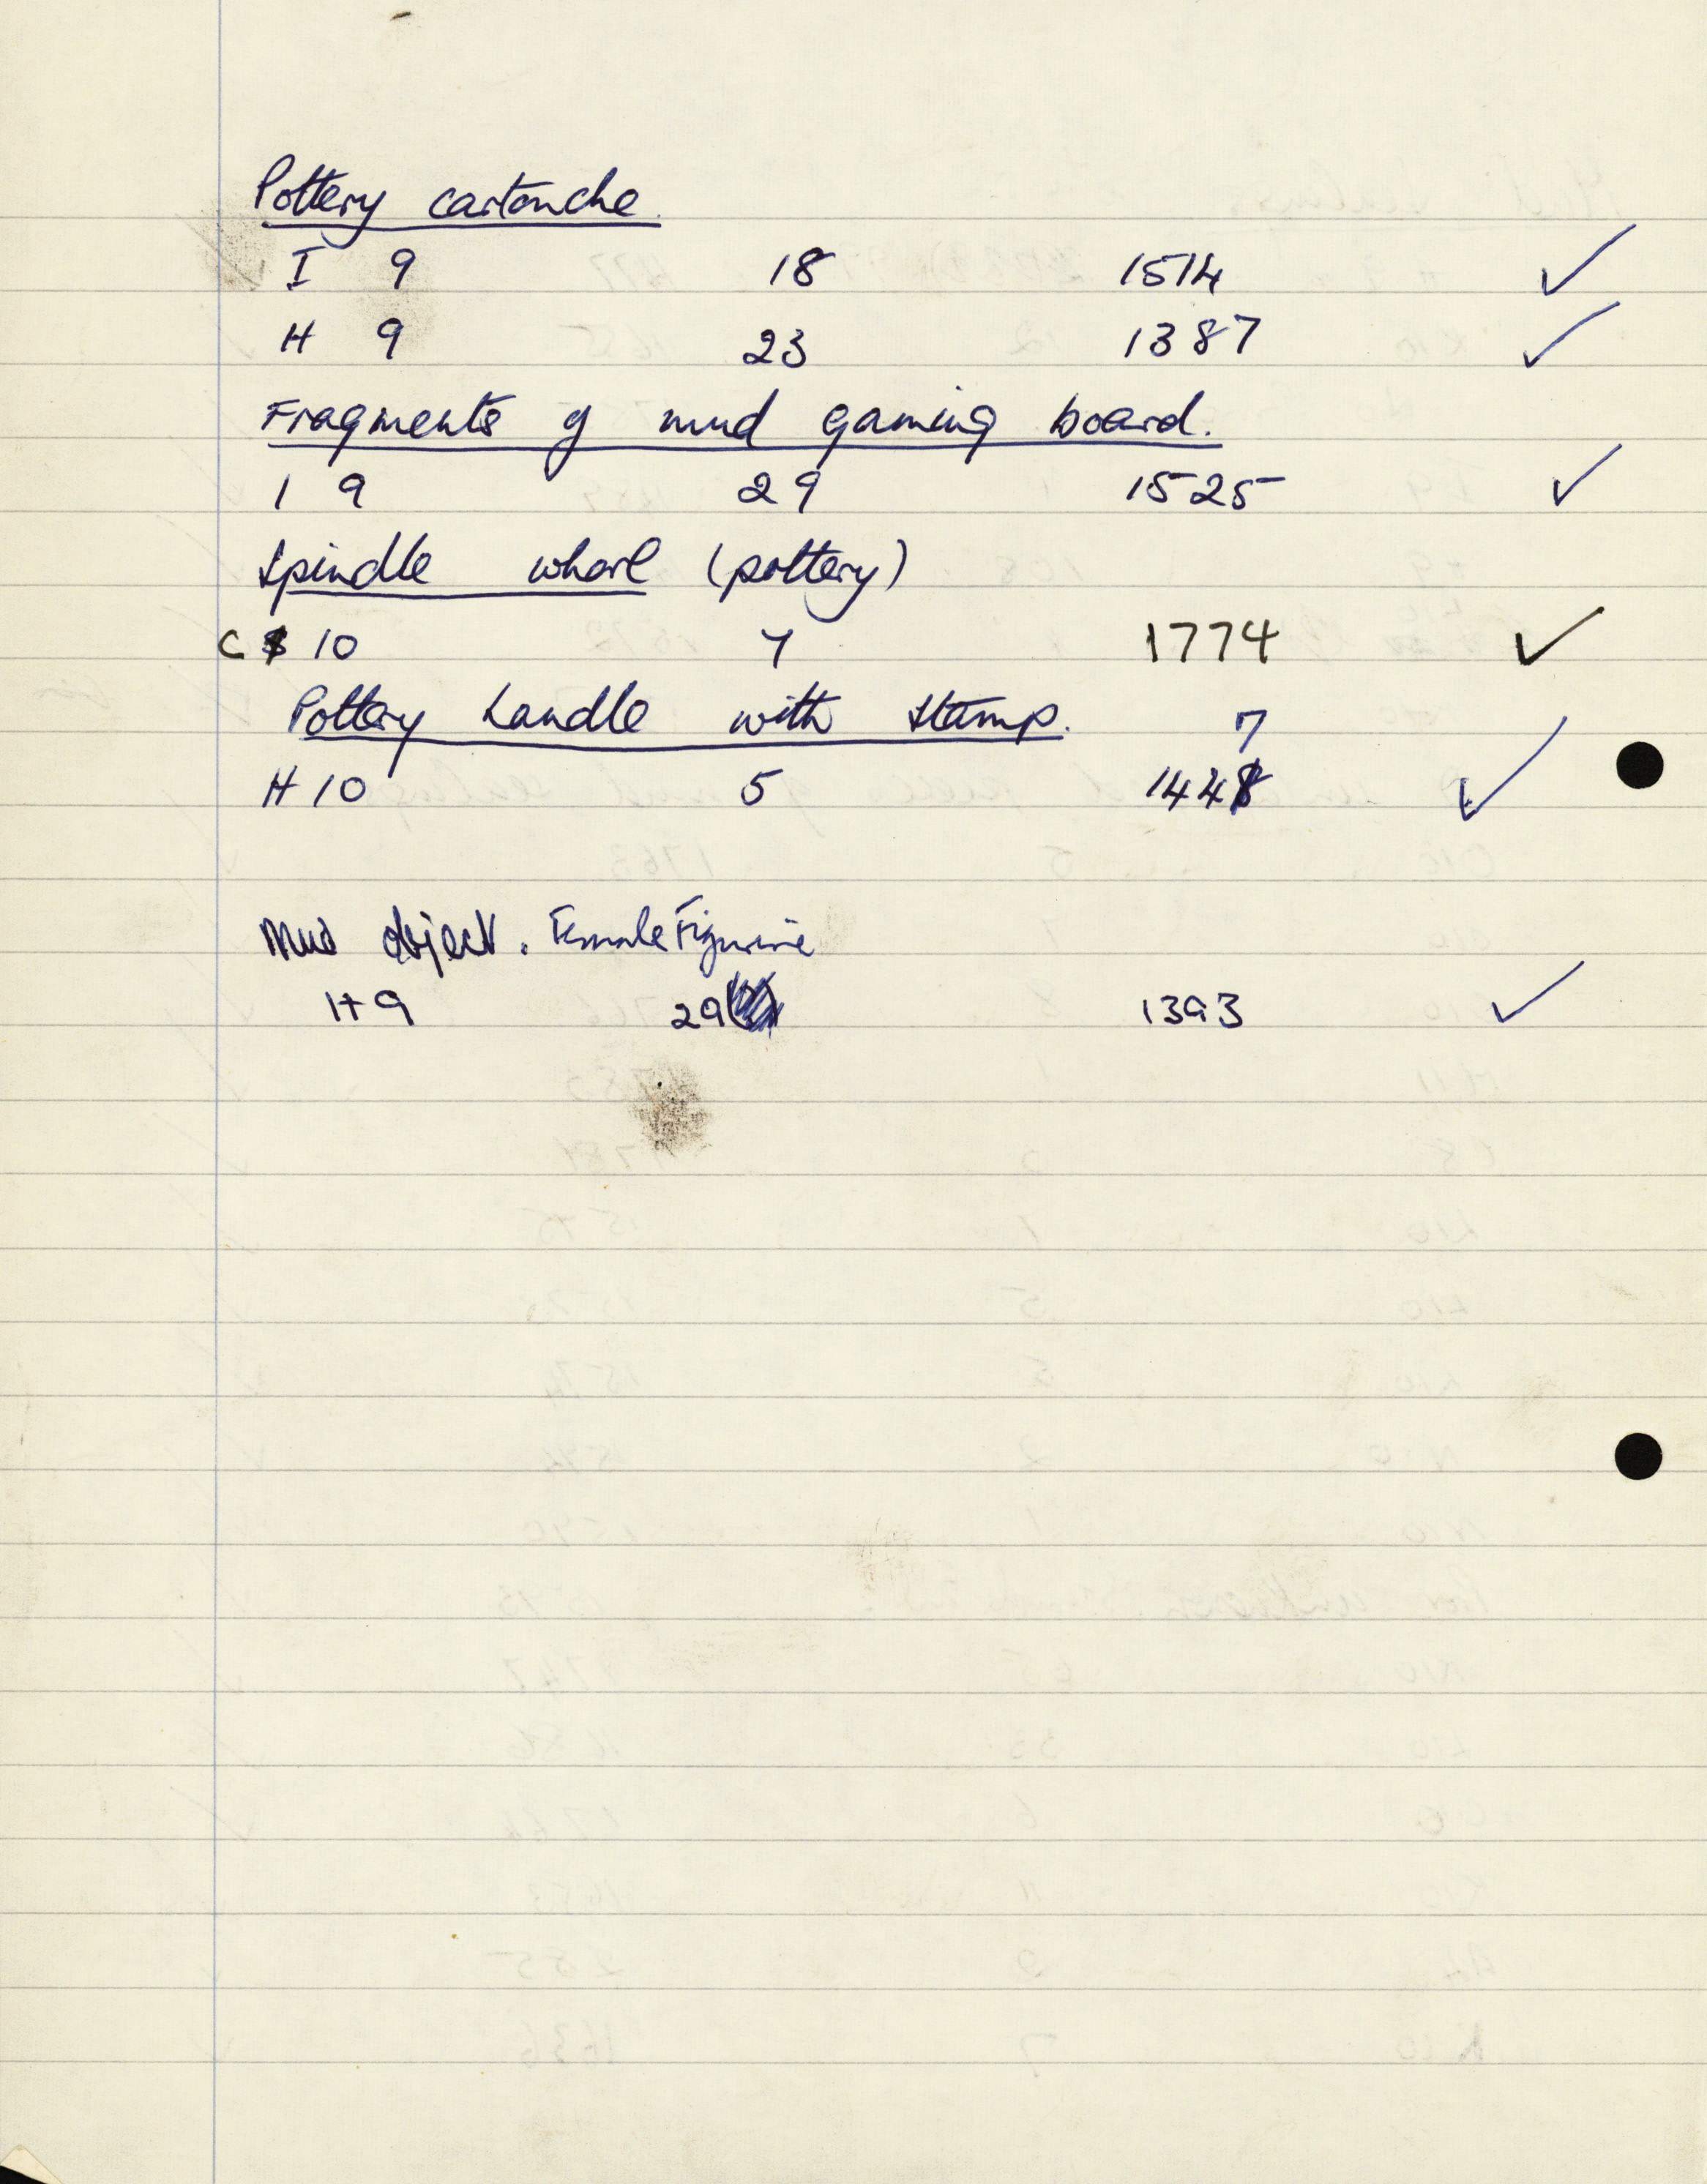 Pottery cartouche.
I 9 18 1514 ✓
H 9 23 1387 ✓
Fragments of mud gaming board.
I 9 29 1525 ✓
Spindle whorl (pottery)
C 10 7 1774 ✓
Pottery handle with stamp.
7
H 10 5 1448 ✓
Mud object. Female Figurine
H 9 29 1393 ✓